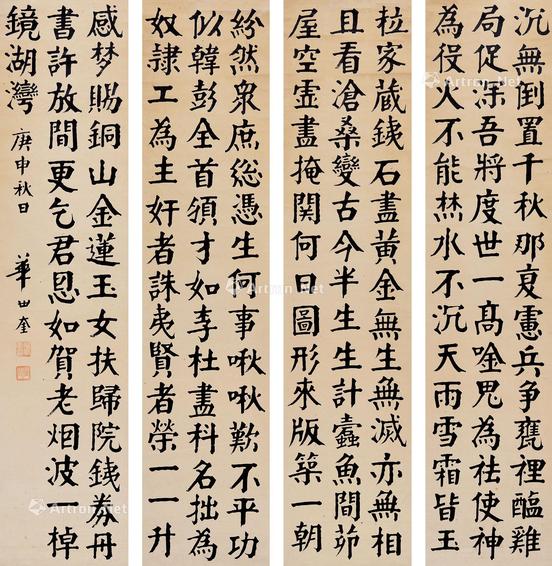 沉無倒置千秋那复慮兵争甕裡醯雞
局促深吾將度世一高唫鬼為祛使神
為役火不能焚水不沉天雨雪霜皆玉
粒家蔵鉄石盡黄金無生無滅亦無相
且看滄桑變古今半生生計蠹魚間茆
屋空虚晝掩関何日圖形來版築一朝
紛然衆庶總憑生何事啾啾歎不平功
似韓彭全首領才如李杜盡科名拙為
奴隷工為主奸者誅夷賢者榮一一升
感梦賜銅山金蓮玉女扶歸院鉄券丹
書許放間更乞君恩如賀老烟波一棹
鏡湖灣 庚申秋日 華世奎